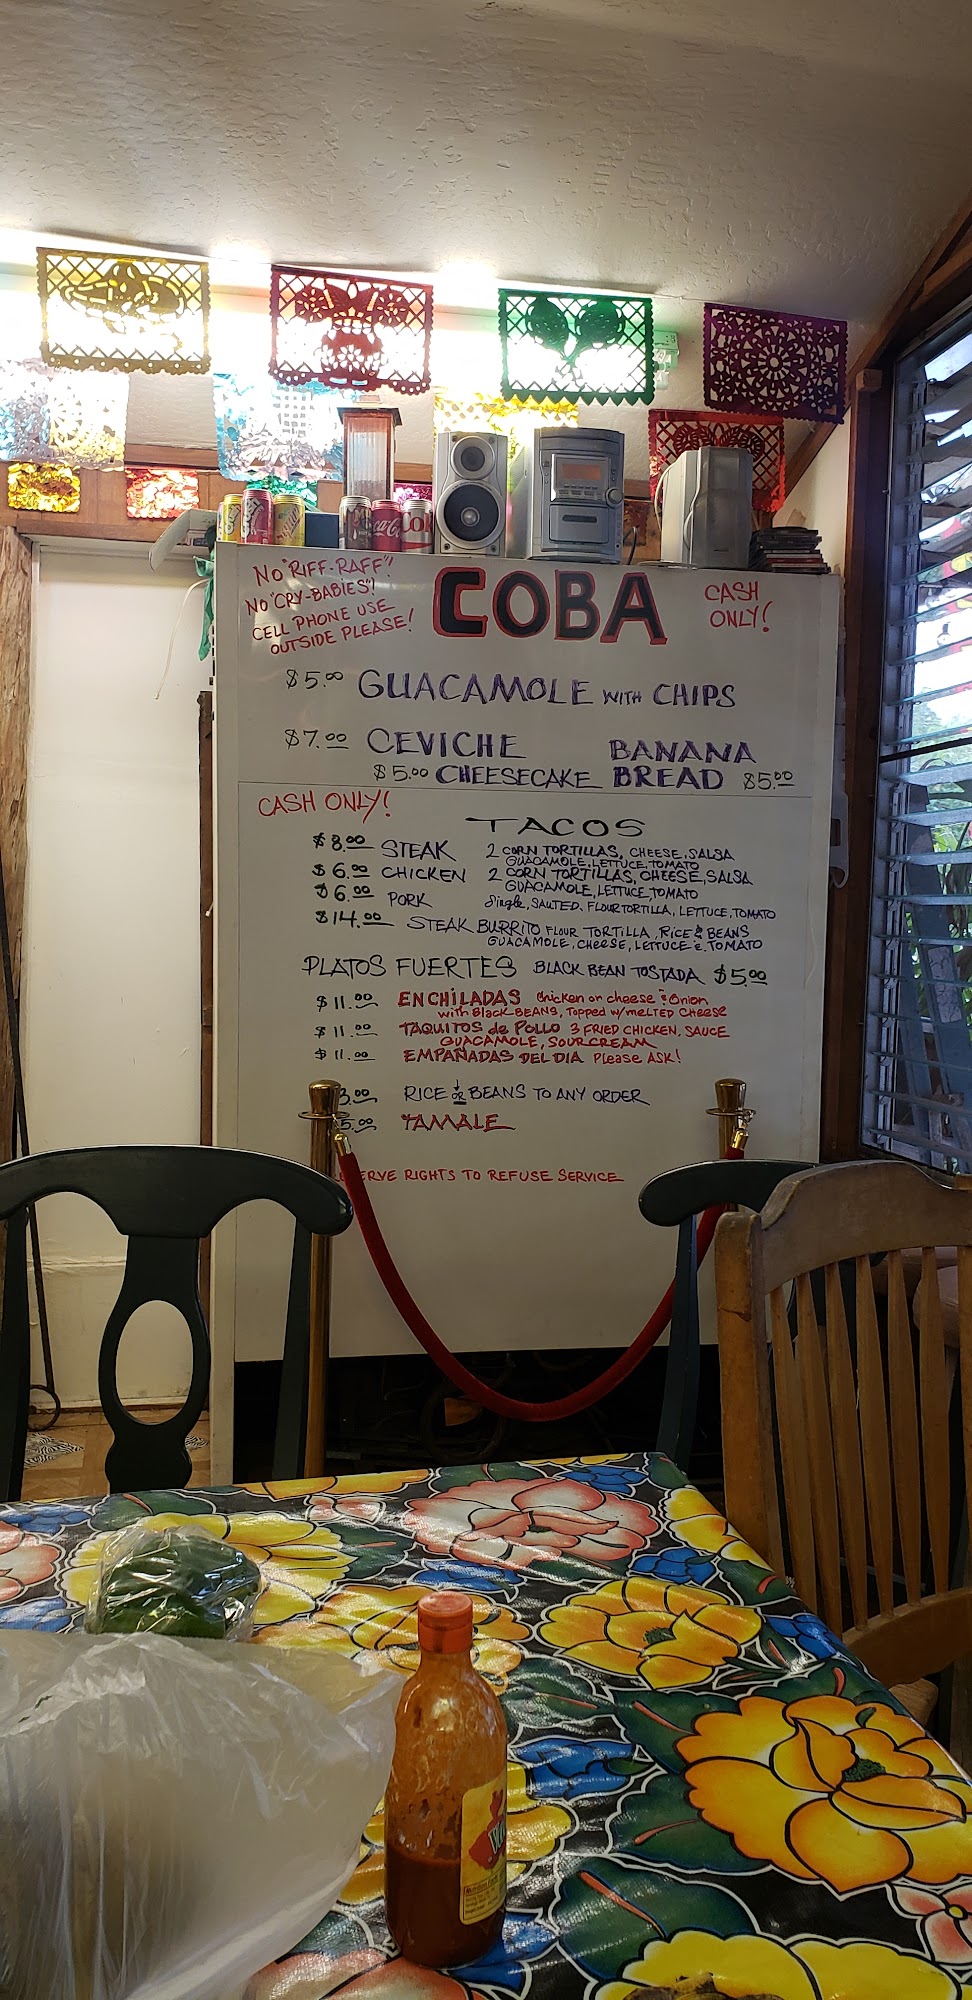 NO "RIFF-RAFF"!
NO "CRY-BABIES"!
CELL PHONE USE
OUTSIDE PLEASE!
COBA
CASH
ONLY!
$5.00 GUACAMOLE WITH CHIPS
$7.00 CEVICHE
BANANA
BREAD $5.00
$5.00 CHEESECAKE
CASH ONLY!
TACOS
$8.00 STEAK 2 CORN TORTILLAS, CHEESE, SALSA
GUACAMOLE, LETTUCE, TOMATO
$6.00 CHICKEN 2 CORN TORTILLAS, CHEESE, SALSA
GUACAMOLE, LETTUCE, TOMATO
$6.00 PORK Single, SAUTED, FLOUR TORTILLA, LETTUCE, TOMATO
$14.00 STEAK BURRITO FLOUR TORTILLA, RICE & BEANS
GUACAMOLE, CHEESE, LETTUCE & TOMATO
PLATOS FUERTES BLACK BEAN TOSTADA $5.00
$11.00 ENCHILADAS Chicken or cheese & Onion
with Black BEANS, Topped w/ MELTED Cheese
$11.00 TAQUITOS de POLLO 3 FRIED CHICKEN, SAUCE
GUACAMOLE, SOUR CREAM
$11.00 EMPAÑADAS DEL DIA Please ASK!
3.00 RICE & or BEANS TO ANY ORDER
5.00 TAMALE
RIGHTS TO REFUSE SERVICE
Coca-Cola